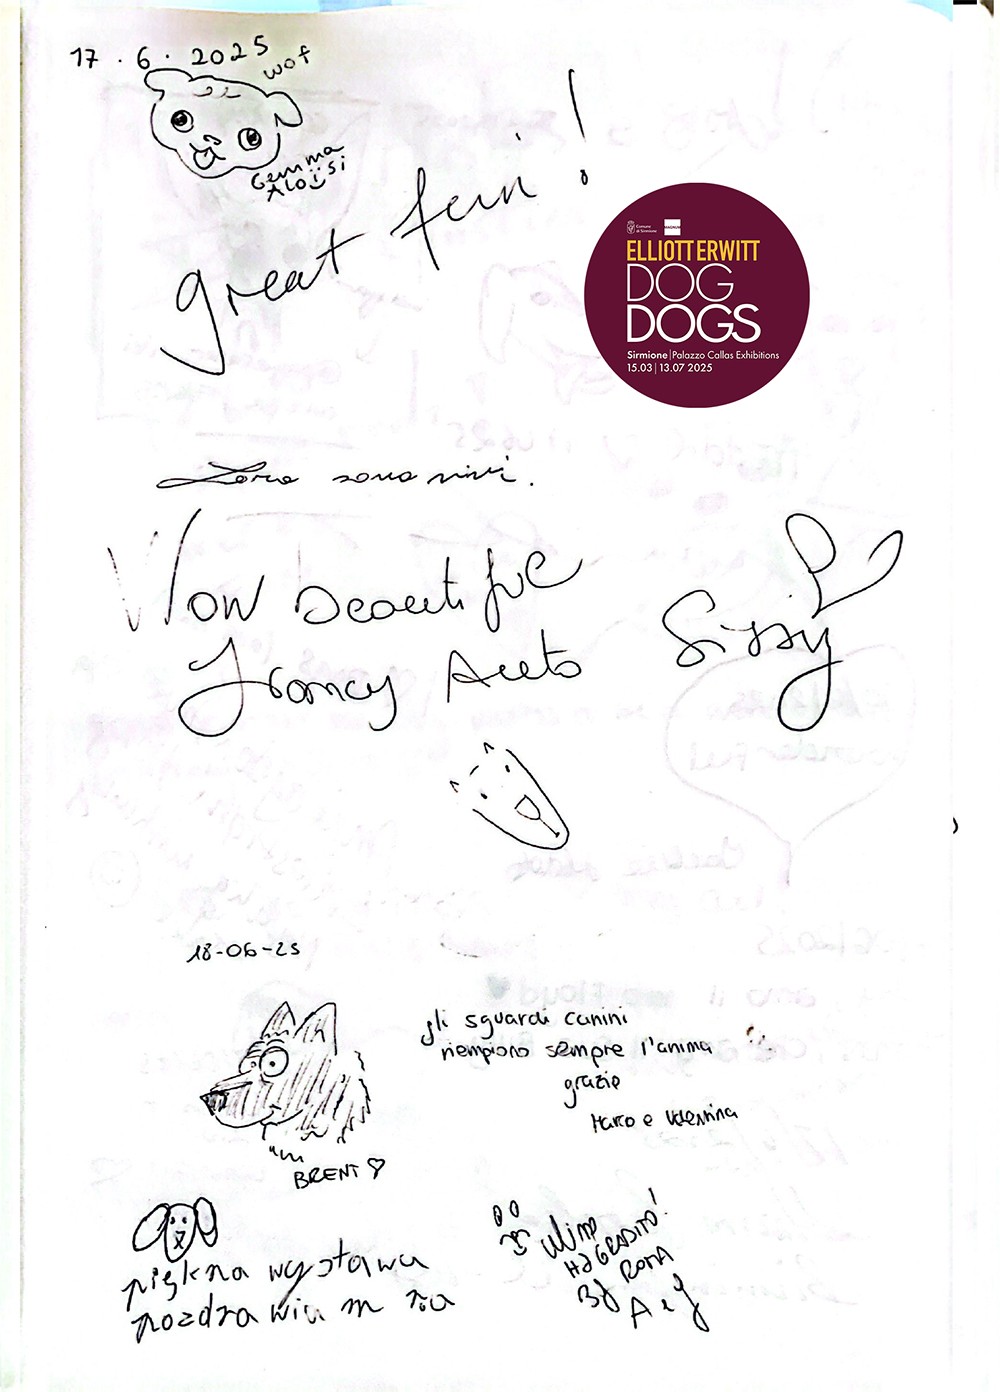 17 . 6 . 2025
wof
Gemma
Aloisi
great fun!
Comune
di Sirmione
MAGNUM
ELLIOTT ERWITT
DOG
DOGS
Sirmione | Palazzo Callas Exhibitions
15.03 | 13.07 2025
sono vivi.
Wow beautiful
Francy Aceto
Sissy
18-06-25
gli sguardi canini
riempiono sempre l'anima
grazie
Marco e Valentina
BRENT
piękna wystawa
pozdrawiam
HA GRADITO!
ROMA
A e J